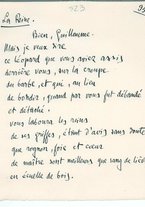 La Reine
323
Bien, Guillaume.
Mais je veux dire
ce léopard que vous aviez assis
derrière vous, sur la croupe
du barbe, et qui, au lieu
de bondir, quand par vous fut débandé
et détaché
vous laboura les reins
de ses griffes, étant d'avis sans doute
que rognon, foie et cœur
de maître sont meilleurs que sang de lièvre
en écuelle de bois.